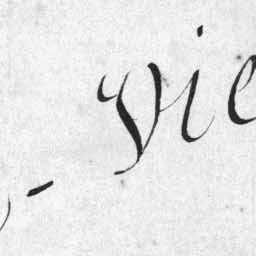 - Vie